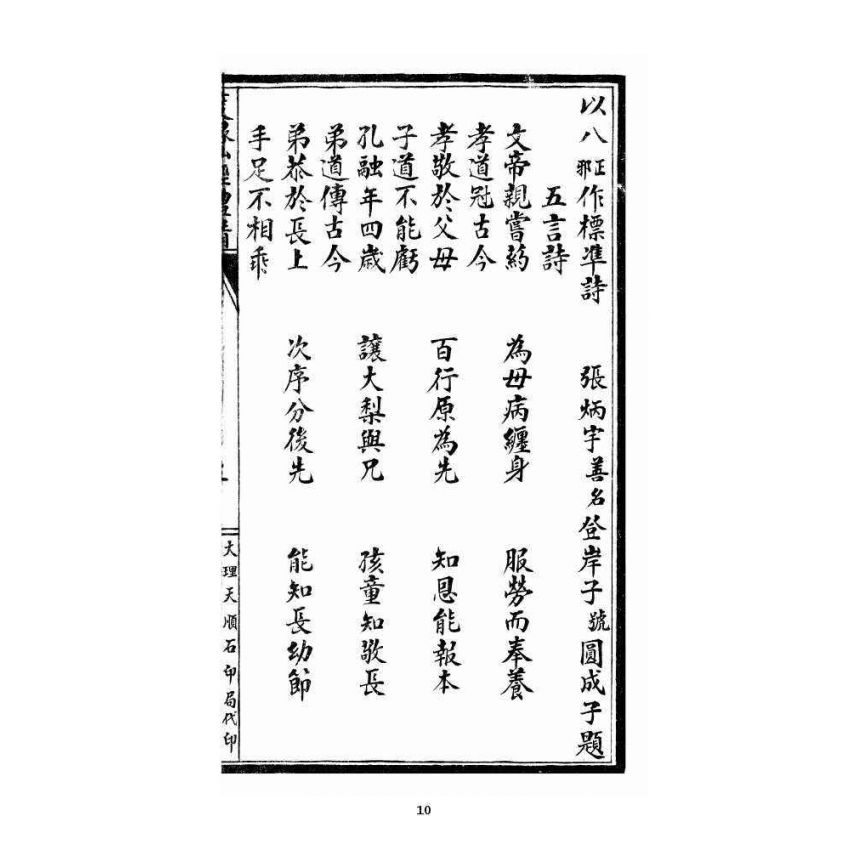 以八正邪作標準詩 張炳宇善名登岸子號圓成子題
五言詩
文帝親嘗葯 為母病纏身 服勞而奉養
孝道冠古今
孝敬於父母 百行原為先 知恩能報本
子道不能虧
孔融年四歲 讓大梨與兄 孩童知敬長
弟道傳古今
弟恭於長上 次序分後先 能知長幼節
手足不相乖
大理天順石印局代印
10